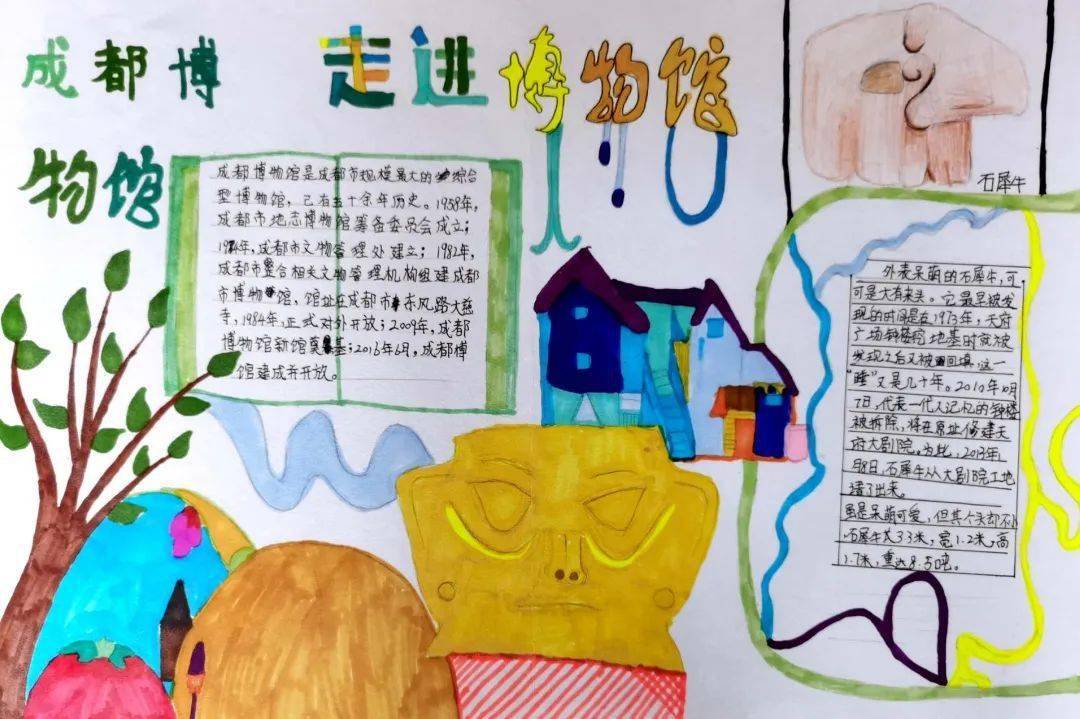 成都博
物馆
走进博物馆
成都博物馆是成都市规模最大的综合
型博物馆，已有五十余年历史。1958年，
成都市地志博物馆筹备委员会成立；
1974年，成都市文物管理处建立；1982年，
成都市整合相关文物管理机构组建成都
市博物馆，馆址在成都市东风路大慈
寺，1984年，正式对外开放；2009年，成都
博物馆新馆奠基；2016年6月，成都博
馆建成并开放。
石犀牛
外表呆萌的石犀牛，可
可是大有来头。它最早被发
现的时间是在1973年，天府
广场钟楼挖地基时就被
发现之后又被回填，这一
“睡”又是几十年。2010年10月
7日，代表一代人记忆的钟楼
被拆除，将在原址修建天
府大剧院。为此，2013年，
1月8日，石犀牛从大剧院工地
请了出来。
虽是呆萌可爱，但其个头却不小
石犀牛长3.3米，宽1.2米，高
1.7米，重达8.5吨。